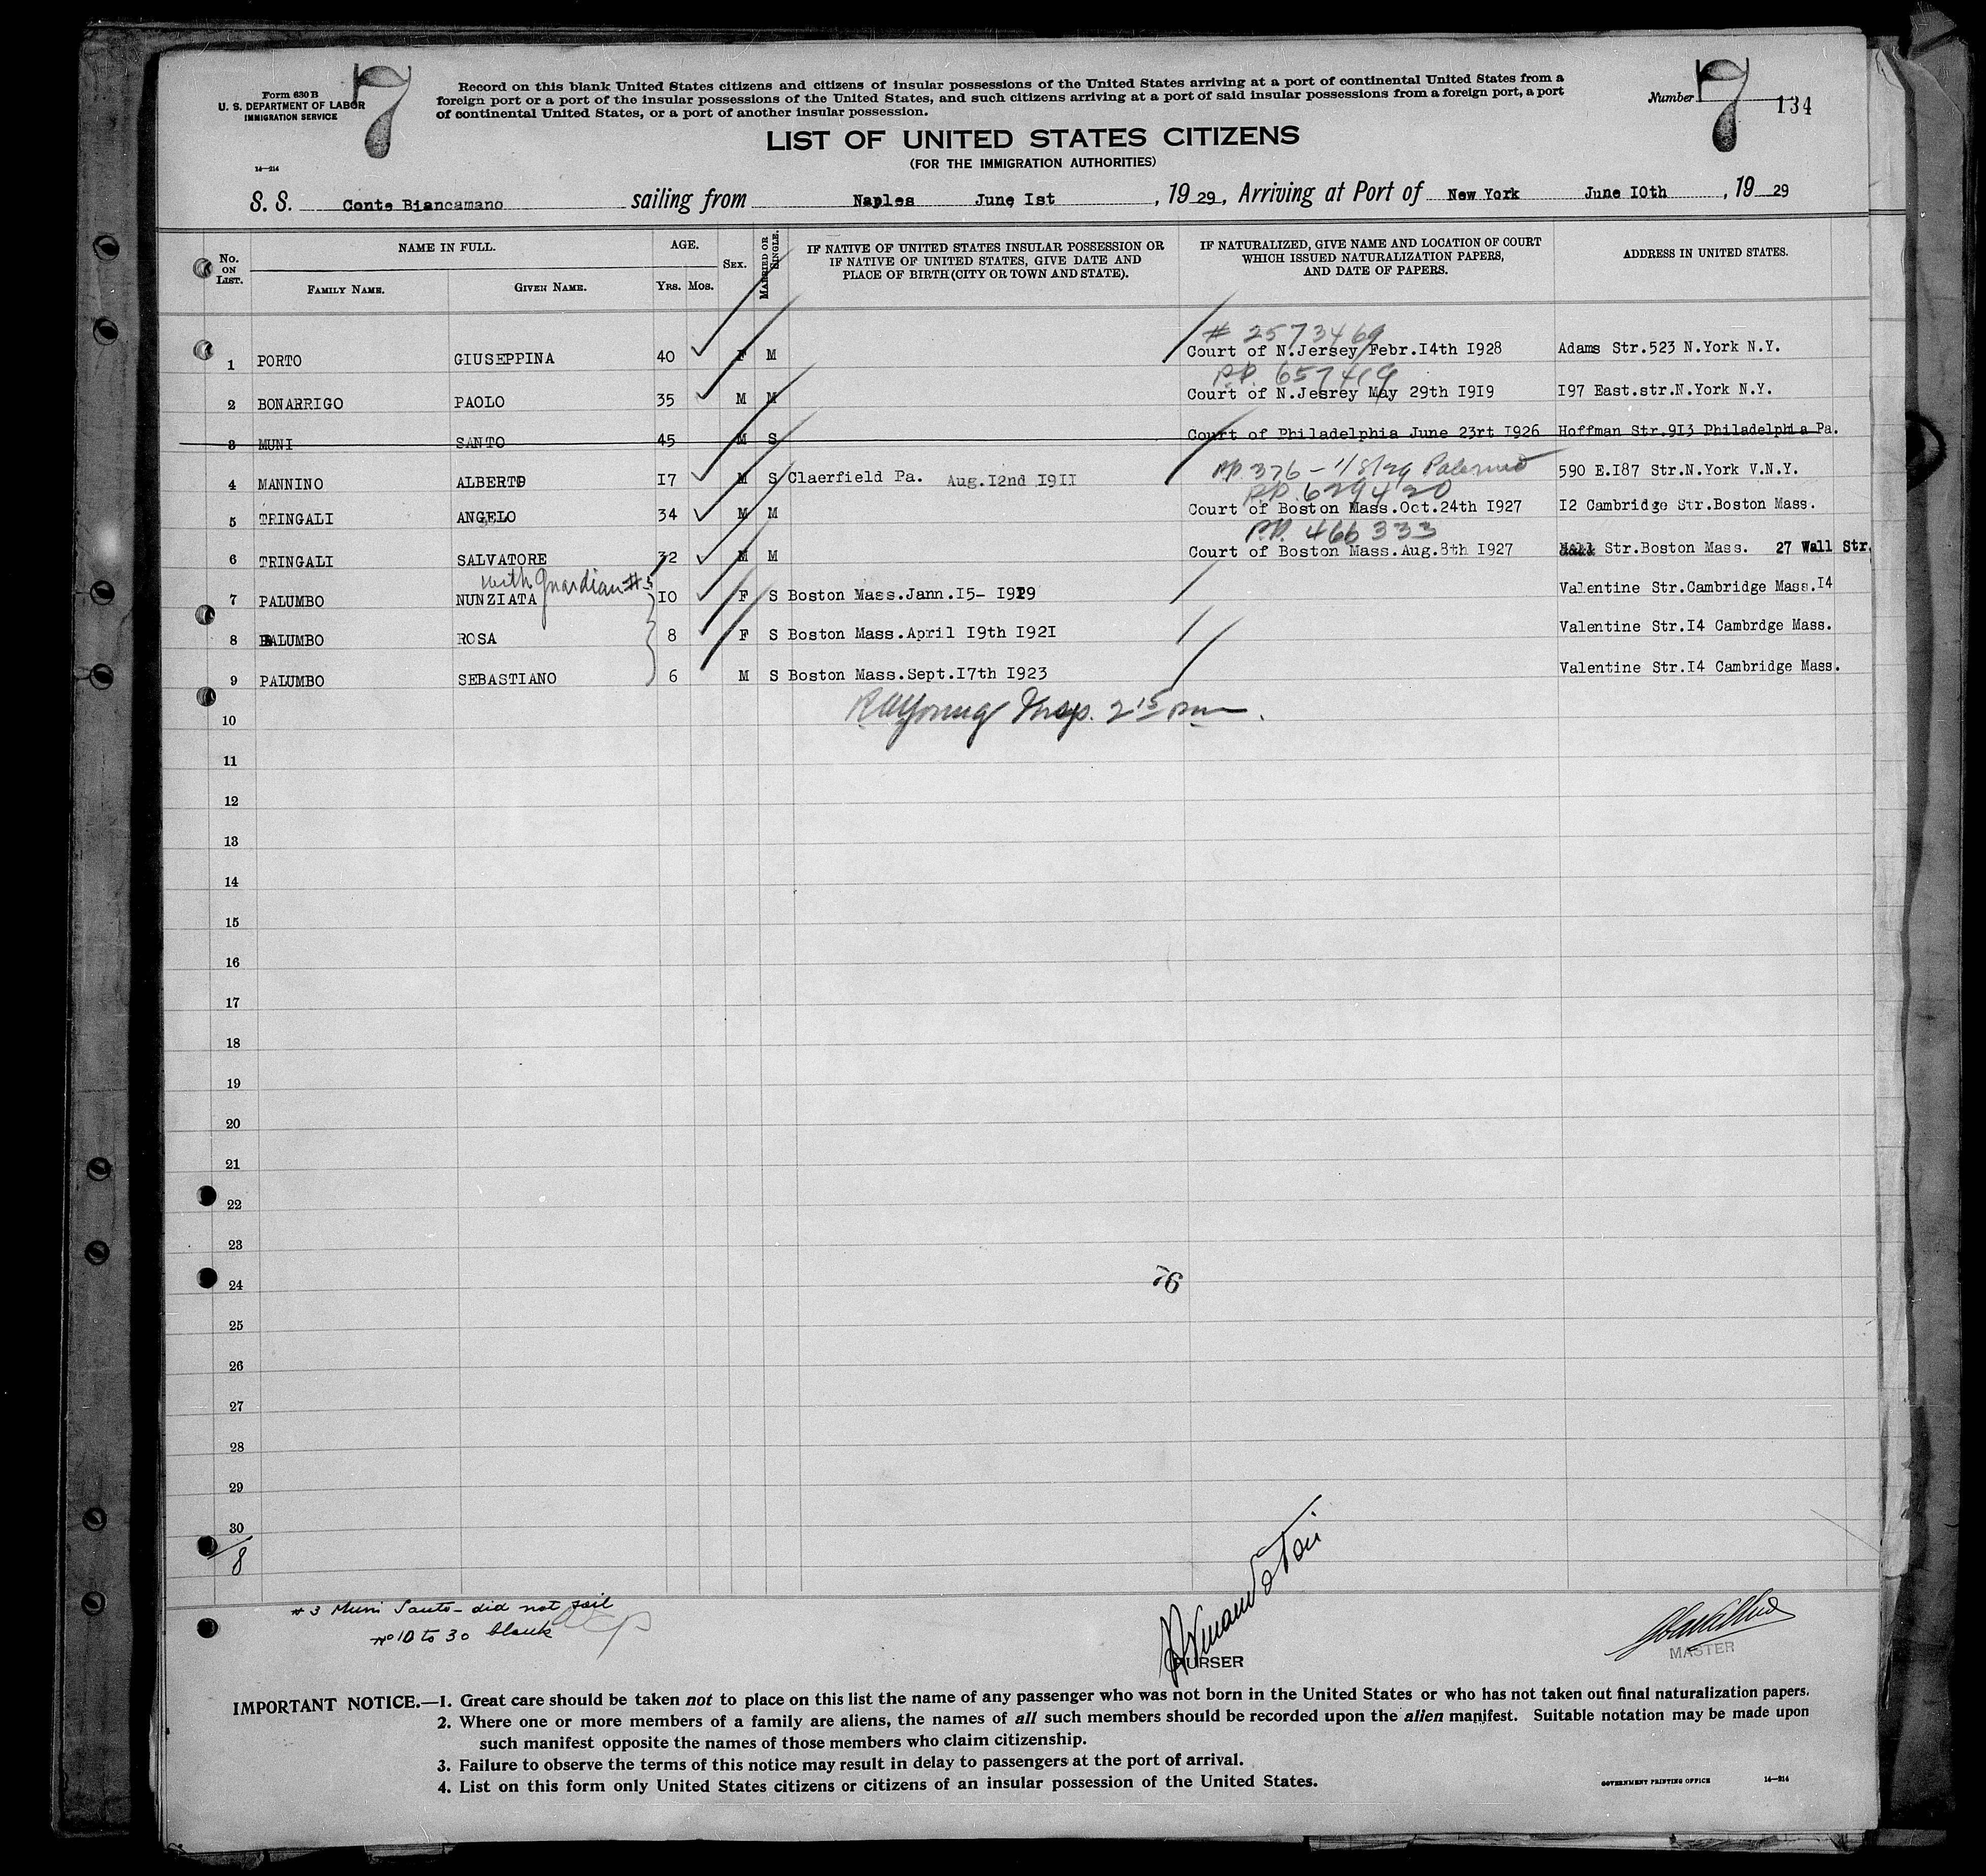 Form 630 B
U. S. DEPARTMENT OF LABOR
IMMIGRATION SERVICE
14—214
7
Record on this blank United States citizens and citizens of insular possessions of the United States arriving at a port of continental United States from a
foreign port or a port of the insular possessions of the United States, and such citizens arriving at a port of said insular possessions from a foreign port, a port
of continental United States, or a port of another insular possession.
Number 7 134
LIST OF UNITED STATES CITIZENS
(FOR THE IMMIGRATION AUTHORITIES)
S. S. Conte Biancamano sailing from Naples June Ist , 19 29, Arriving at Port of New York June I0th , 19 29
No. ON LIST. NAME IN FULL. AGE. SEX. MARRIED OR SINGLE. IF NATIVE OF UNITED STATES INSULAR POSSESSION OR IF NATIVE OF UNITED STATES, GIVE DATE AND PLACE OF BIRTH (CITY OR TOWN AND STATE). IF NATURALIZED, GIVE NAME AND LOCATION OF COURT WHICH ISSUED NATURALIZATION PAPERS, AND DATE OF PAPERS. ADDRESS IN UNITED STATES.
FAMILY NAME. GIVEN NAME. YRS. MOS.
# 2573469
1 PORTO GIUSEPPINA 40 F M Court of N.Jersey Febr.I4th I928 Adams Str.523 N.York N.Y.
P.P. 657419
2 BONARRIGO PAOLO 35 M M Court of N.Jesrey May 29th I9I9 I97 East.str.N.York N.Y.
3 MUNI SANTO 45 M S Court of Philadelphia June 23rt I926 Hoffman Str.9I3 Philadelphia Pa.
PP. 376 - 1/8/29 Palermo
4 MANNINO ALBERTO I7 M S Claerfield Pa. Aug.I2nd I9II 590 E.I87 Str.N.York V.N.Y.
P.P. 629420
5 TRINGALI ANGELO 34 M M Court of Boston Mass.Oct.24th I927 I2 Cambridge Str.Boston Mass.
P.P. 466333
6 TRINGALI SALVATORE 32 M M Court of Boston Mass.Aug.8th I927 Str.Boston Mass. 27 Wall Str.
with guardian #5
7 PALUMBO NUNZIATA I0 F S Boston Mass.Jann.I5- I919 Valentine Str.Cambridge Mass.I4
8 PALUMBO ROSA 8 F S Boston Mass.April I9th I92I Valentine Str.I4 Cambrdge Mass.
9 PALUMBO SEBASTIANO 6 M S Boston Mass.Sept.I7th I923 Valentine Str.I4 Cambridge Mass.
10 Young Insp. 2 15 pm
11
12
13
14
15
16
17
18
19
20
21
22
23
24
76
25
26
27
28
29
30
8
# 3 Muni Santo - did not sail
no 10 to 30 blank
PURSER
MASTER
IMPORTANT NOTICE.—1. Great care should be taken not to place on this list the name of any passenger who was not born in the United States or who has not taken out final naturalization papers.
2. Where one or more members of a family are aliens, the names of all such members should be recorded upon the alien manifest. Suitable notation may be made upon
such manifest opposite the names of those members who claim citizenship.
3. Failure to observe the terms of this notice may result in delay to passengers at the port of arrival.
4. List on this form only United States citizens or citizens of an insular possession of the United States.
GOVERNMENT PRINTING OFFICE 14—214